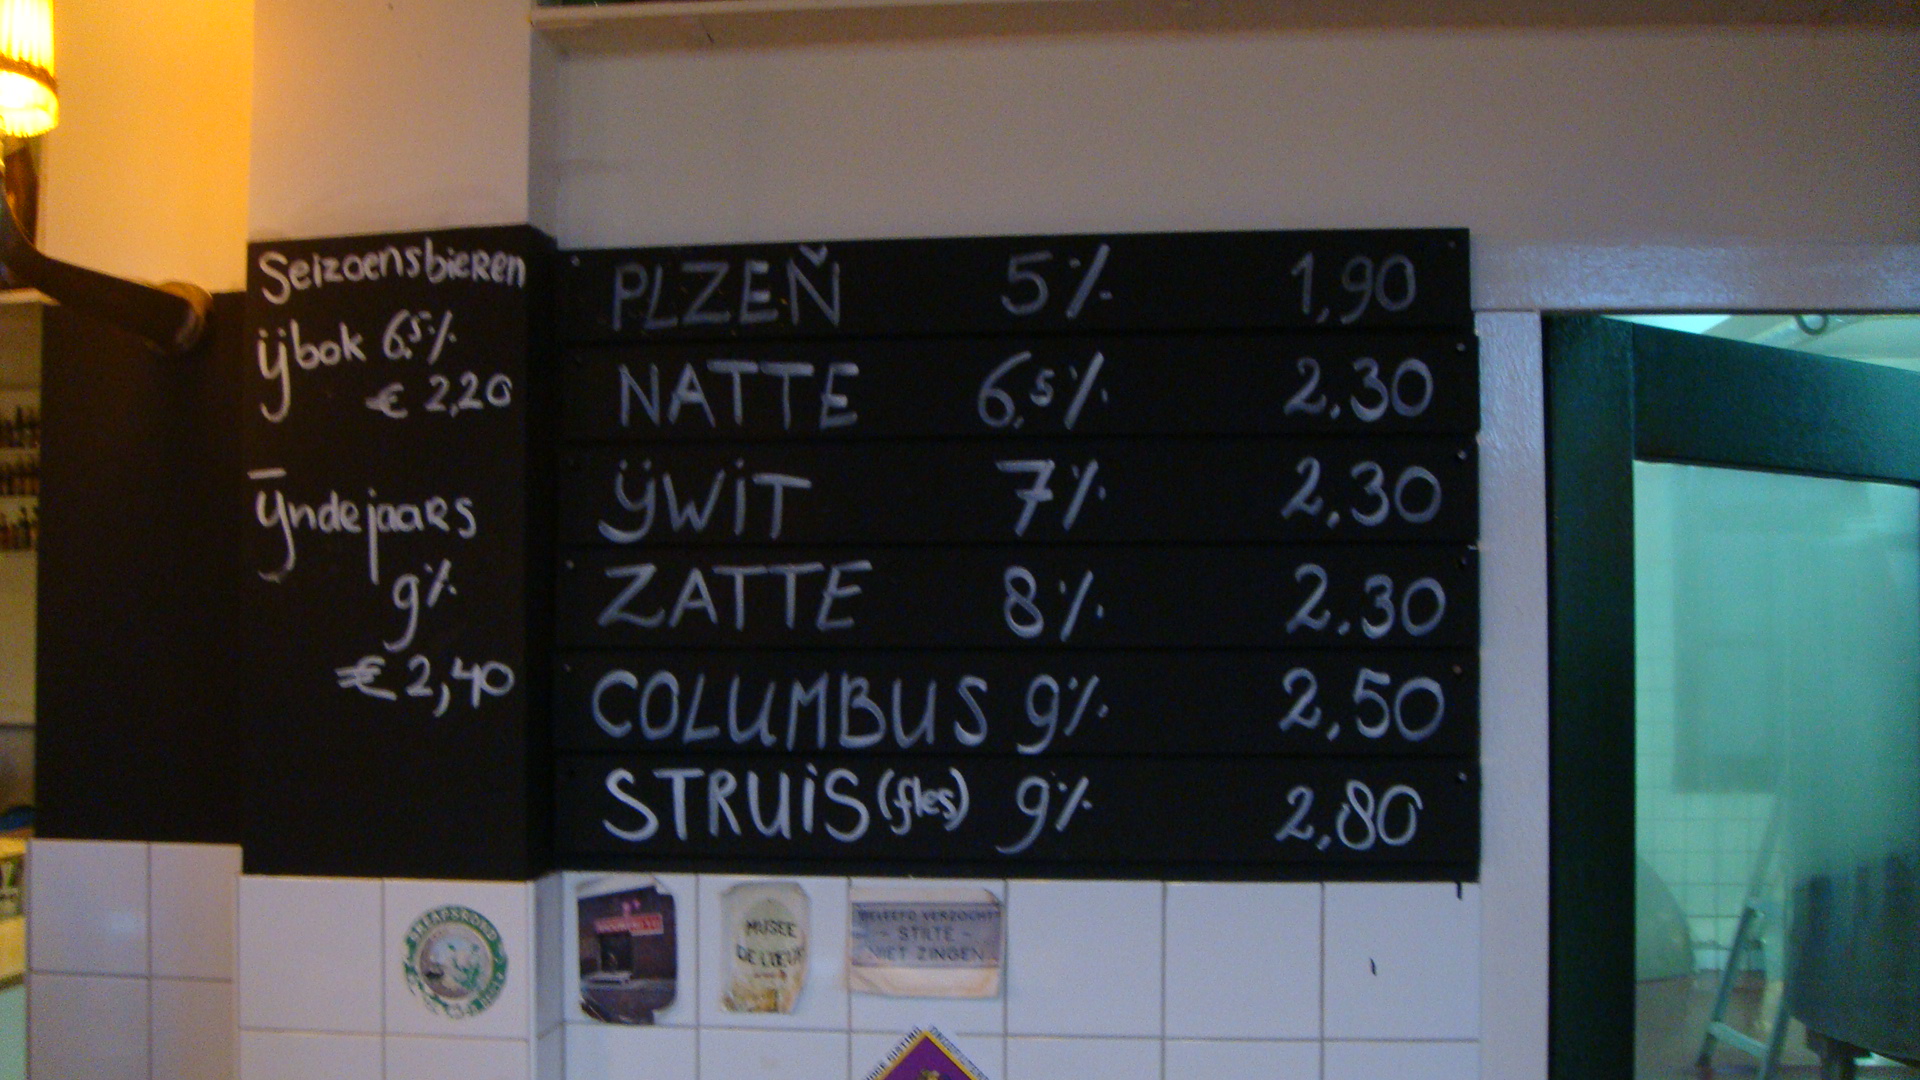 Seizoensbieren
ijbok 6,5%
€ 2,20
ijndejaars
9%
€ 2,40
PLZEŇ 5% 1,90
NATTE 6,5% 2,30
ijWiT 7% 2,30
ZATTE 8% 2,30
COLUMBUS 9% 2,50
STRUiS (fles) 9% 2,80
MUSEE
BELEEFD VERZOCHT
- STILTE -
NIET ZINGEN